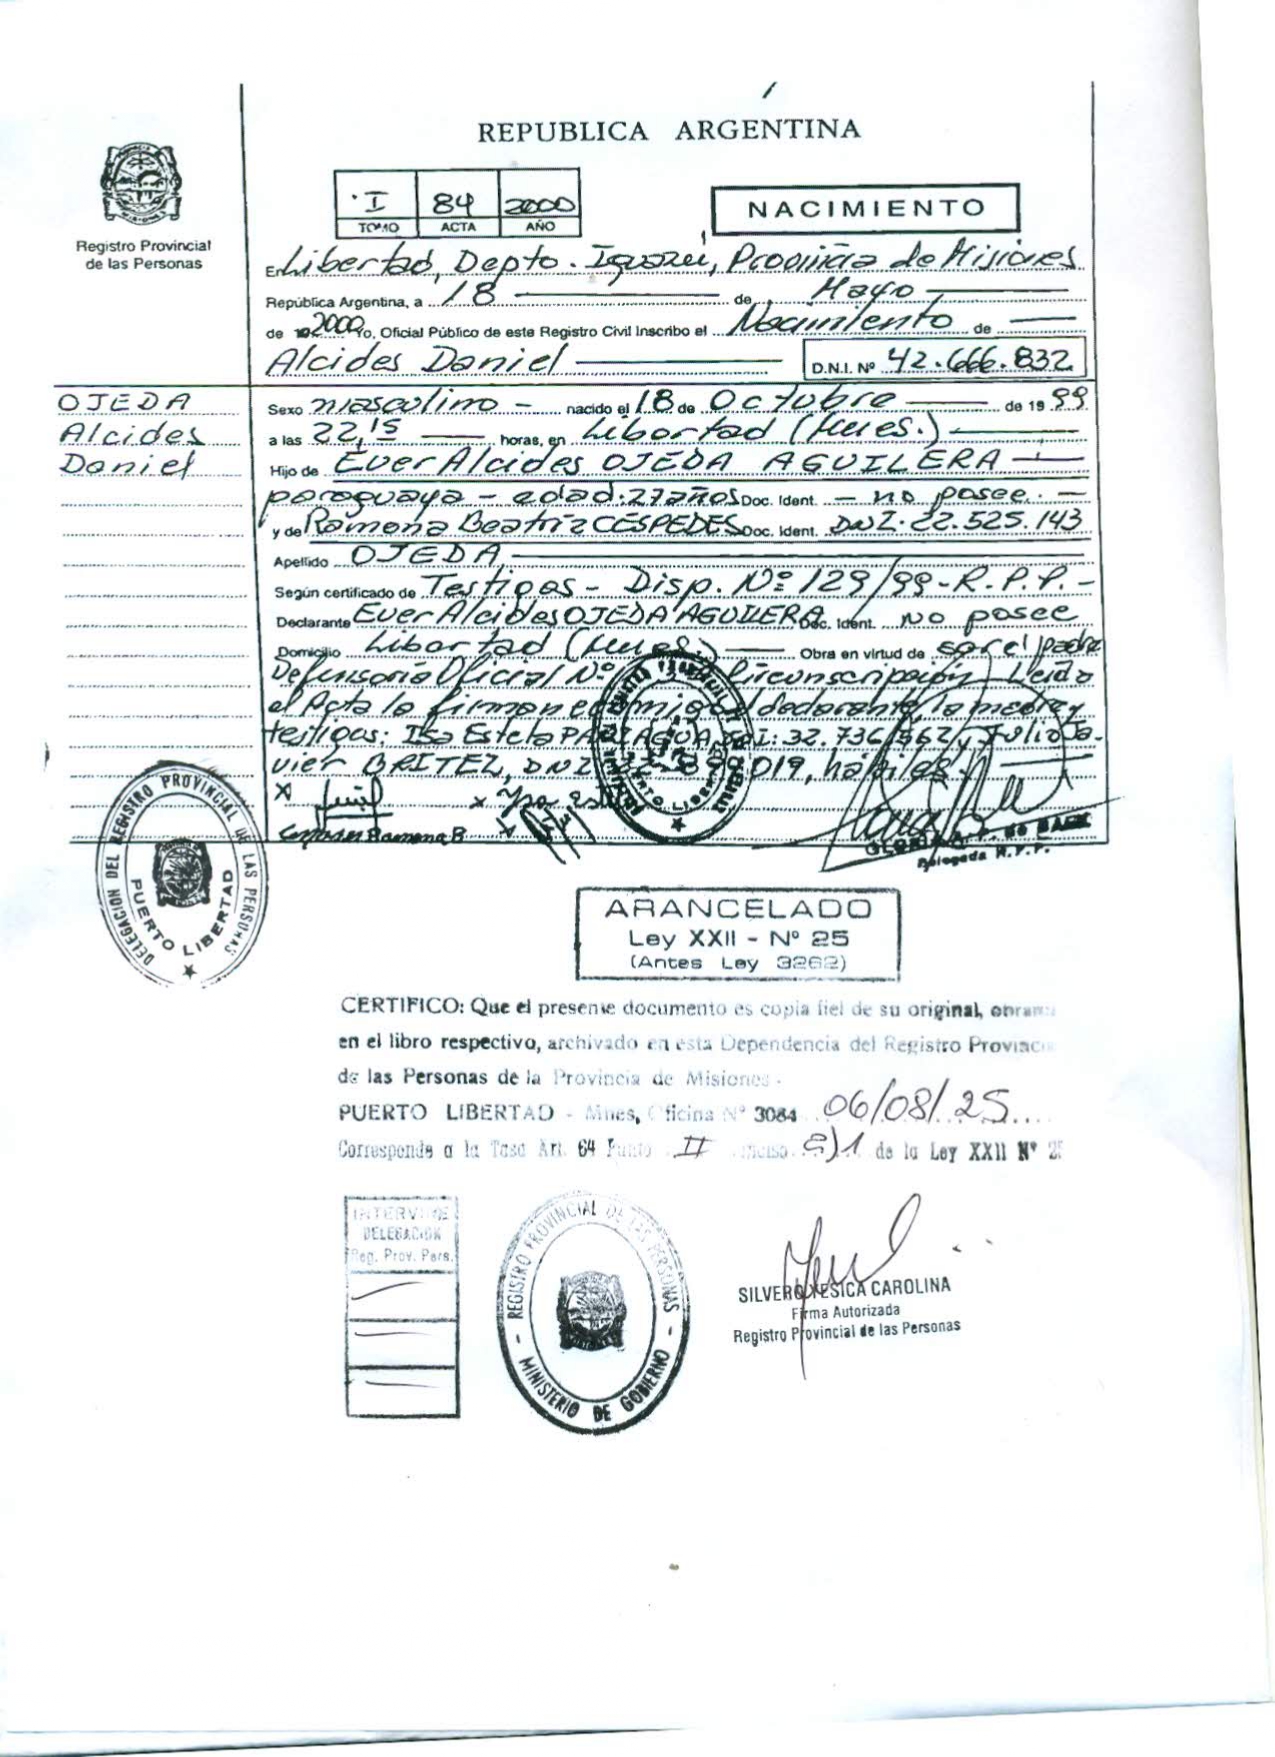 REPUBLICA ARGENTINA
Registro Provincial
de las Personas
I 84 2000
TOMO ACTA AÑO
NACIMIENTO
En Libertad, Depto. Iguazú, Provincia de Misiones
República Argentina, a 18 de Mayo
de 2000 Yo, Oficial Público de este Registro Civil Inscribo el Nacimiento de
Alcides Daniel D.N.I. Nº 42.666.832
OJEDA
Alcides
Daniel
Sexo masculino - nacido el 18 de Octubre de 1999
a las 22,15 horas, en Libertad (Mnes.)
Hijo de Ever Alcides OJEDA AGUILERA
paraguaya - edad: 27 años Doc. Ident. - no posee. -
y de Ramona Beatriz CÉSPEDES Doc. Ident. DNI. 22.525.143
Apellido OJEDA
Según certificado de Testigos - Disp. Nº 129/99 - R.P.P. -
Declarante Ever Alcides OJEDA AGUILERA Doc. Ident. no posee
Domicilio Libertad (Mnes.) Obra en virtud de ser el padre
Defensoría Oficial Nº Circunscripción Leída
el Acta la firman conmigo el declarante la madre y
testigos: Isa Estela DNI: 32.736.562, Julio Ja-
vier BRITEZ, DNI 019, hábiles
Ramona B.
Delegada R.P.P.
DELEGACION DEL REGISTRO PROVINCIAL DE LAS PERSONAS
PUERTO LIBERTAD
ARANCELADO
Ley XXII - Nº 25
(Antes Ley 3262)
CERTIFICO: Que el presente documento es copia fiel de su original,
en el libro respectivo, archivado en esta Dependencia del Registro
de las Personas de la Provincia de Misiones.-
PUERTO LIBERTAD - Mnes, Oficina Nº 3084 06/08/25
Corresponde a la Tasa Art. 64 Punto II Inciso a)1 de la Ley XXII Nº
INTERVINE
DELEGACION
Reg. Prov. Pers.
REGISTRO PROVINCIAL DE LAS PERSONAS
- MINISTERIO DE GOBIERNO -
SILVERO YESICA CAROLINA
Firma Autorizada
Registro Provincial de las Personas